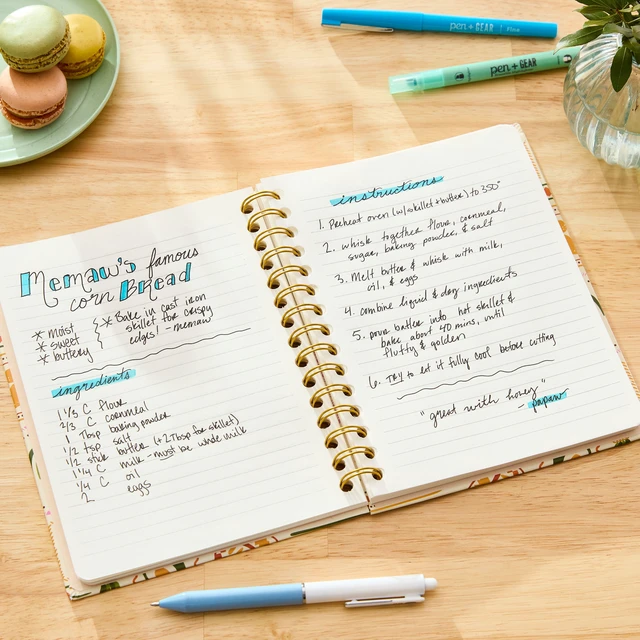 pen+GEAR 1 Fine
pen+GEAR
Memaw's famous
corn Bread
* moist
* sweet
* buttery
* Bake in cast iron
skillet for crispy
edges! - memaw
ingredients
1 1/3 C flour
2/3 C cornmeal
1 Tbsp baking powder
1/2 tsp salt
1/2 stick butter (+2Tbsp for skillet)
1 1/4 C milk - must be whole milk
1/4 C oil
2 eggs
instructions
1. Preheat oven (w/ skillet + butter) to 350°
2. whisk together flour, cornmeal,
sugar, baking powder, & salt
3. Melt butter & whisk with milk,
oil, & eggs
4. combine liquid & dry ingredients
5. pour batter into hot skillet &
bake about 40 mins, until
fluffy & golden
6. TRY to let it fully cool before cutting
"great with honey"
- papaw